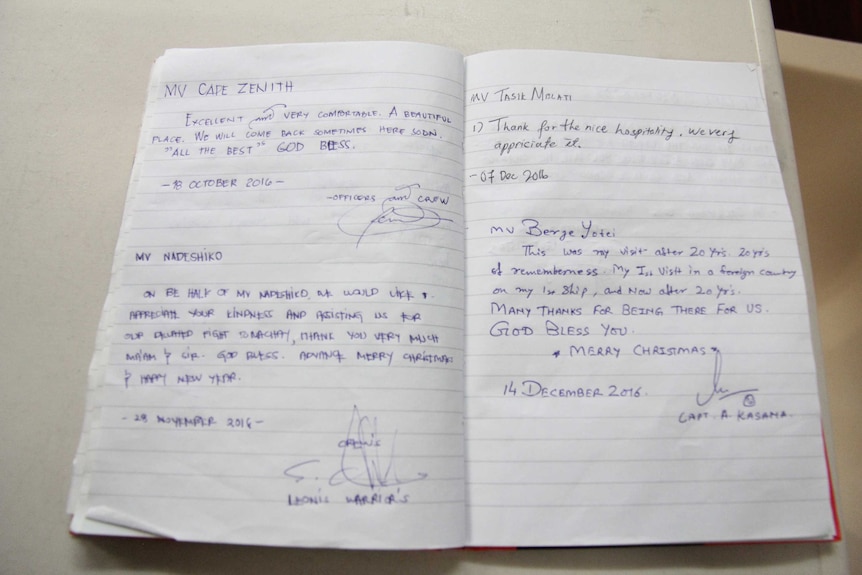 MV CAPE ZENITH
EXCELLENT and VERY COMFORTABLE. A BEAUTIFUL
PLACE. WE WILL COME BACK SOMETIMES HERE SOON.
"ALL THE BEST" GOD BLESS.
-18 OCTOBER 2016-
-OFFICERS and CREW
MV NADESHIKO
ON BE HALF OF MV NADESHIKO, WE WOULD LIKE
APPRECIATE YOUR KINDNESS AND ASSISTING US FOR
OUR THANK YOU VERY MUCH
MA'AM & SIR. GOD BLESS. ADVANCE MERRY CHRISTMAS
& HAPPY NEW YEAR.
-28 NOVEMBER 2016-
WARRIOR'S
MV TASIK MELATI
1) Thank for the nice hospitality, we very
appriciate it.
-07 Dec 2016
MV Berge Yotei
This was my visit after 20 yrs. 20 yrs
of rememberness. My Ist visit in a foreign country
on my 1st ship, and Now after 20 yrs.
MANY THANKS FOR BEING THERE FOR US.
GOD BLESS YOU.
* MERRY CHRISTMAS *
14 DECEMBER 2016.
CAPT. A. KASAMA.